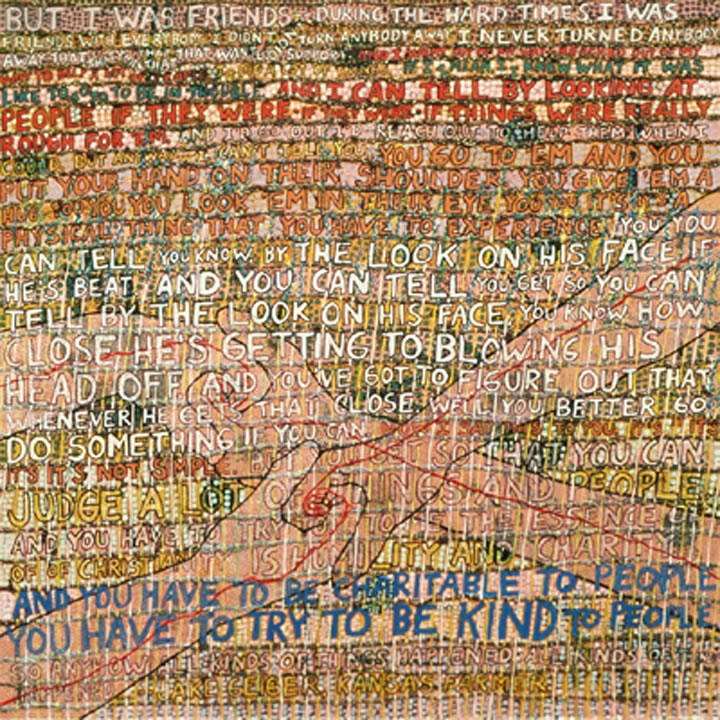 BUT I WAS FRIENDS DURING THE HARD TIMES I WAS
FRIENDS WITH EVERYBODY I DIDN'T TURN ANYBODY AWAY I NEVER TURNED ANYBODY
AWAY THAT THAT WAS
I KNOW WHAT IT WAS
LIKE TO TO BE IN TROUBLE AND I CAN TELL BY LOOKING AT
PEOPLE IF THEY WERE IF THEY WERE IF THINGS WERE REALLY
ROUGH FOR 'EM AND I'D GO OUT I'D REACH OUT TO HELP THEM WHEN I
COULD BUT YOU GO TO EM AND YOU
PUT YOUR HAND ON THEIR SHOULDER YOU GIVE 'EM A
HUG YOU LOOK 'EM IN THEIR EYE IT'S A
PHYSICAL THING THAT YOU HAVE TO EXPERIENCE YOU YOU
CAN TELL YOU KNOW BY THE LOOK ON HIS FACE IF
HE'S BEAT AND YOU CAN TELL YOU GET SO YOU CAN
TELL BY THE LOOK ON HIS FACE, YOU KNOW HOW
CLOSE HE'S GETTING TO BLOWING HIS
HEAD OFF AND YOU'VE GOT TO FIGURE OUT THAT
WHENEVER HE GETS THAT CLOSE. WELL YOU BETTER GO
DO SOMETHING IF YOU CAN
IT'S IT'S NOT SIMPLE BUT YOU GET SO THAT YOU CAN
JUDGE A LOT OF THINGS AND PEOPLE.
AND YOU HAVE TO TRY TO THE ESSENCE OF
OF OF CHRISTIANITY IS HUMILITY AND CHARITY
AND YOU HAVE TO BE CHARITABLE TO PEOPLE
YOU HAVE TO TRY TO BE KIND TO PEOPLE.
SO ANYHOW ALL KINDS OF THINGS HAPPENED ALL KINDS OF
HAPPENED JAKE GEIGER, KANSAS FARMER